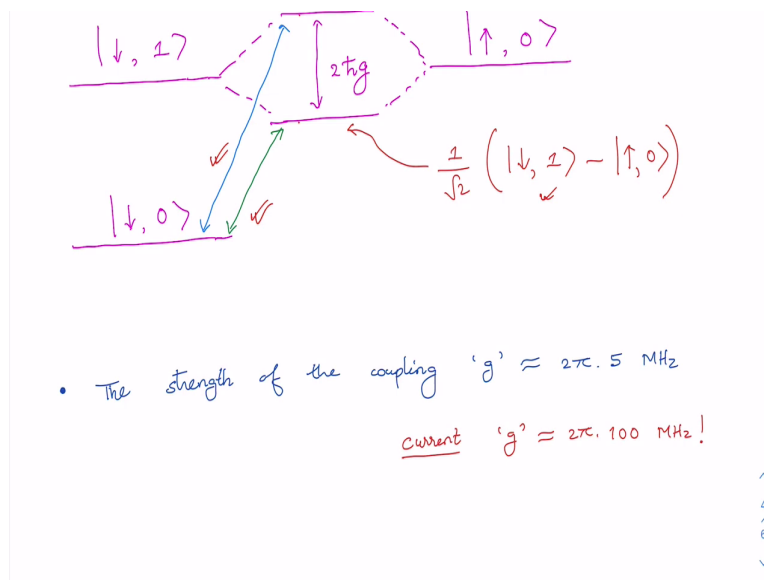 |↓, 1⟩
|↑, 0⟩
2ħg
1/√2 (|↓, 1⟩ - |↑, 0⟩)
|↓, 0⟩
• The strength of the coupling 'g' ≈ 2π. 5 MHz
current 'g' ≈ 2π. 100 MHz!